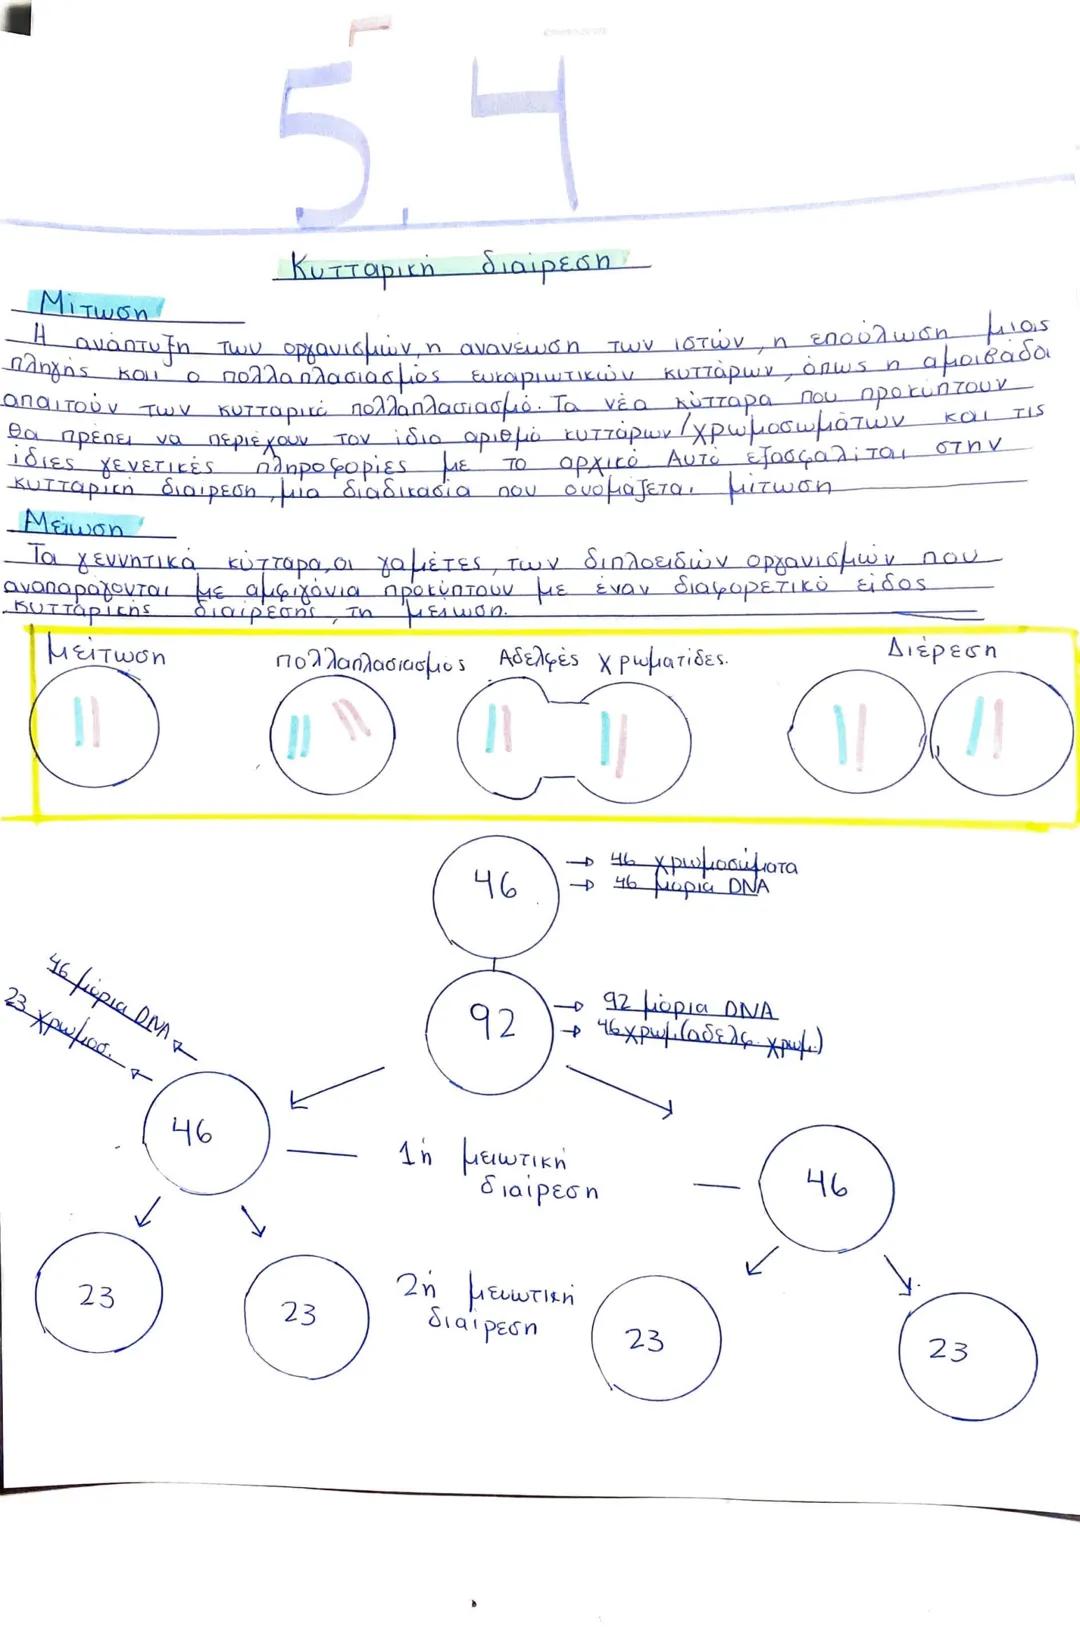 5.4
Κυτταρική διαίρεση
Μίτωση
Η ανάπτυξη των οργανισμών, η ανανέωση των ιστών, η επούλωση μιας
πληγής και ο πολλαπλασιασμός ευκαριωτικών κυττάρων, όπως η αμοιβάδα
απαιτούν των κυτταρικό πολλαπλασιασμό. Τα νέα κύτταρα που προκύπτουν
θα πρέπει να περιέχουν τον ίδιο αριθμό κυττάρων/χρωμοσωμάτων και τις
ίδιες γενετικές πληροφορίες με το αρχικό. Αυτό εξασφαλίται στην
κυτταρική διαίρεση, μια διαδικασία που ονομάζεται μίτωση
Μείωση
Τα γεννητικά κύτταρα, οι γαμέτες, των διπλοειδών οργανισμών που
αναπαράγονται με αμφιγόνια προκύπτουν με έναν διαφορετικό είδος
κυτταρικής διαίρεσης, τη μείωση.
Μείτωση πολλαπλασιασμος Αδελφές χρωματίδες. Διέρεση
46 → 46 χρωμοσώματα
→ 46 μόρια DNA
46 μόρια DNA
23 χρωμοσ.
92 → 92 μόρια DNA
→ 46 χρωμ.(αδελφ. χρωμ.)
46 1ή μειωτική διαίρεση 46
23 23 2ή μειωτική διαίρεση 23 23